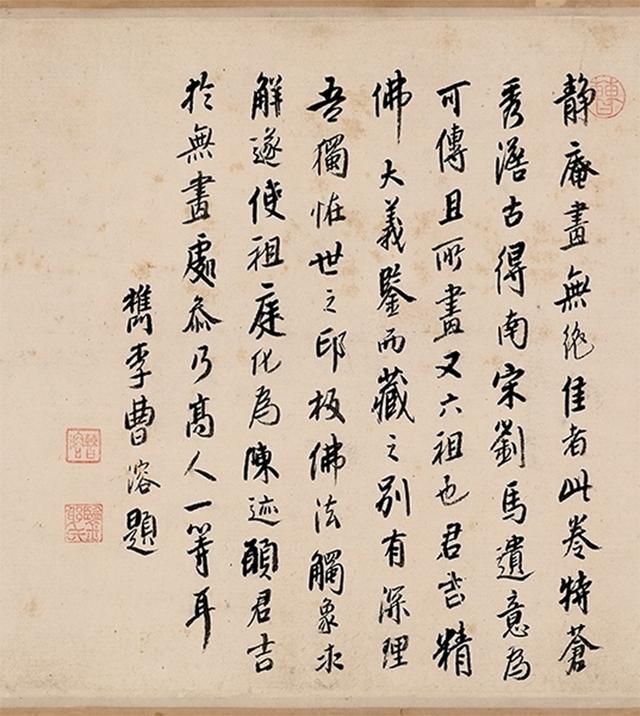 靜庵畫無絕佳者此卷特蒼
秀澹古得南宋劉馬遺意為
可傳且所畫又六祖也君吉精
佛大義鑒而藏之別有深理
吾獨怪世之印板佛法觸象求
解遂使祖庭化為陳迹願君吉
於無畫處參乃高人一籌耳
檇李曹溶題